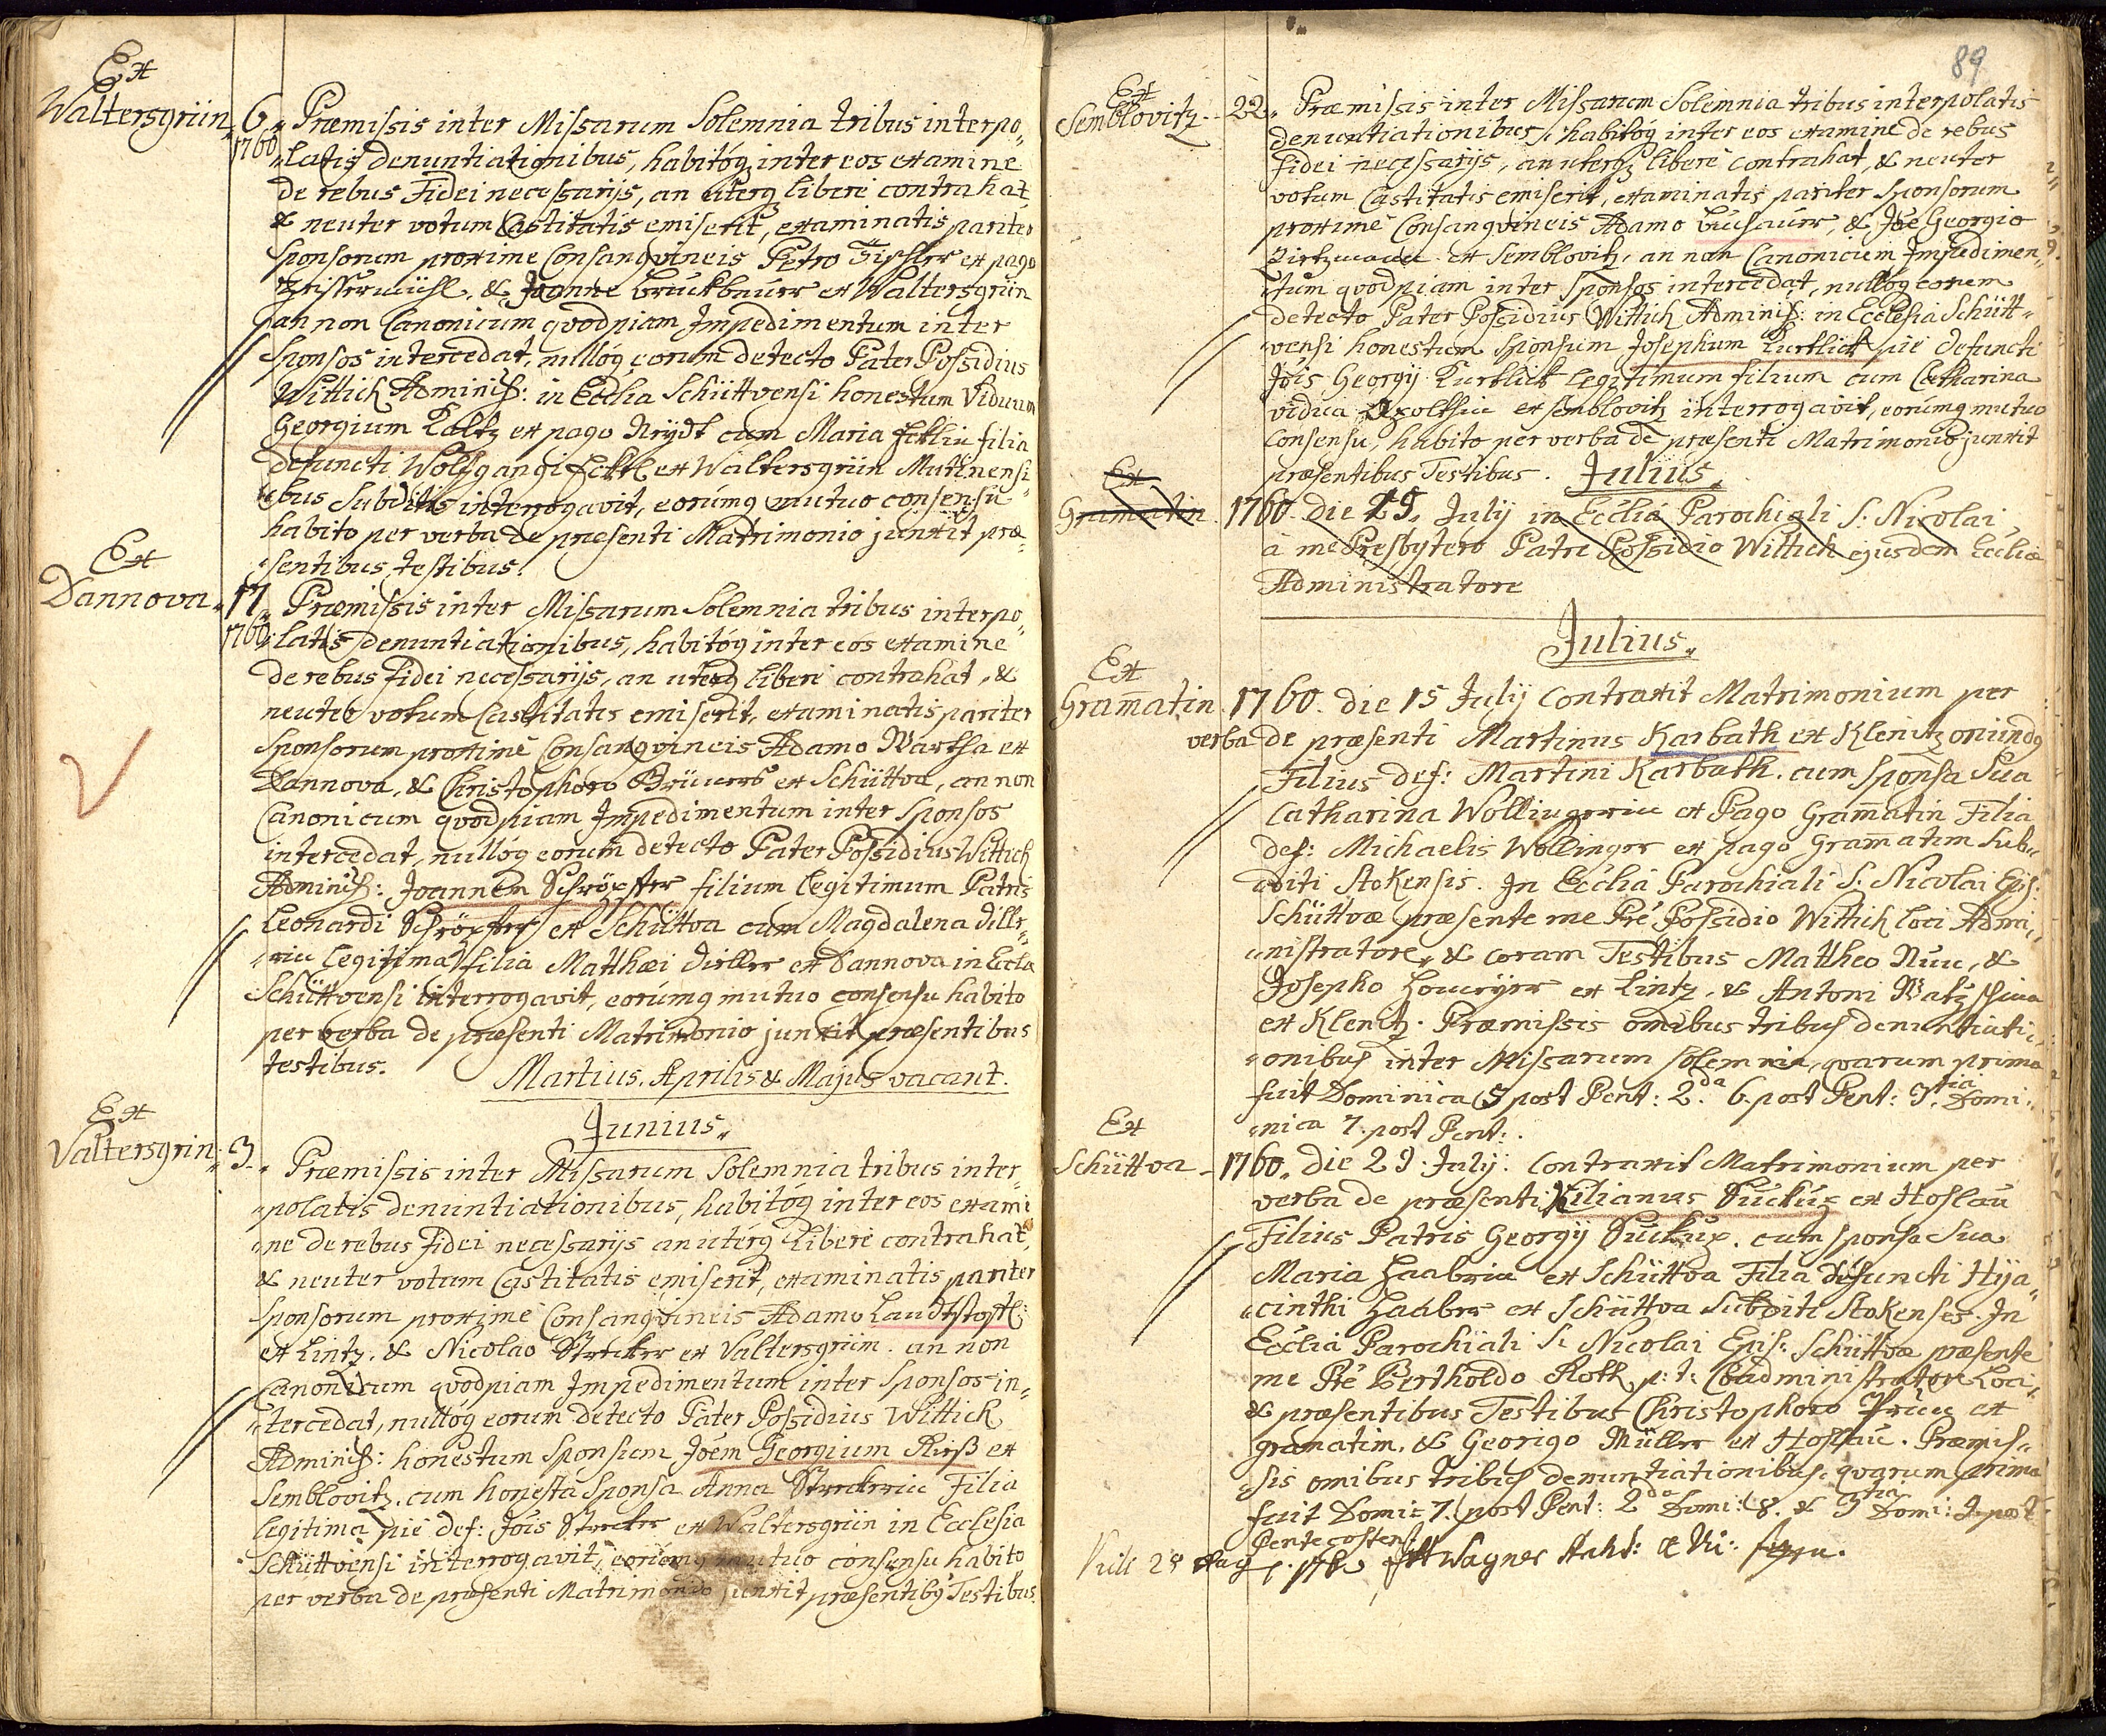 Ex
Waltersgrün
6 Præmissis inter Missarum Solemnia tribus interpo„
1760 „latis denuntiationibus, habitóq inter eos examine
de rebus Fidei necessarijs, an uterq liberè contrahat
& neuter votum Castitatis emiserit, examinatis pariter
Sponsorum proxime Consangvineis Petro Fischer ex pago
& Joanne Bruckbauer ex Waltersgrün
an non Canonicum qvodpiam Impedimentum inter
Sponsos intercedat, nullóq eorum detecto Pater Possidius
Wittich Adminiſ: in Ecclia Schüttvensi honestum Viduum
Georgium Kaltz ex pago cum Maria Ecklin filia
defuncti Wolfgangi Eckl ex Waltersgrün Mutinensi„
„bus Subditis interrogavit, eorúmq mutuo consensu
habito per verba de præsenti Matrimonio junxit præ„
„sentibus testibus.
Ex
Dannova
17 Præmissis inter Missarum Solemnia tribus interpo„
1760 „latis denuntiationibus, habitóq inter eos examine
de rebus Fidei necessarijs, an uterq liberè contrahat, &
neuter votum Castitatis emiserit, examinatis pariter
Sponsorum proximè Consangvineis Adamo Wartha ex
Dannova, & Christophoro ex Schüttva, an non
Canonicum qvodpiam Impedimentum inter Sponsos
intercedat, nulloq eorum detecto Pater Possidius Wittich
Adminiſ: Joannem Schröpffer filium legitimum Patris
Leonardi Schröpffer ex Schüttva cum Magdalena Dille„
„rin legitima filia Matthæi Diller ex Dannova in Eccla
Schüttvensi interrogavit, eorúmq mutuo consensu habito
per verba de præsenti Matrimonio junxit præsentibus
testibus.
Martius. Aprilis & Majus vacant.
Junius„
Ex
Valtersgrin
3 Præmissis inter Missarum Solemnia tribus inter„
„polatis denuntiationibus, habitóq inter eos exami
„ne de rebus Fidei necessarijs an utérq Liberè contrahat,
& neuter votum Castitatis emiserit, examinatis pariter
Sponsorum proximè Consangvineis Adamo Landtstoffl
ex Lintz. & Nicolao Strecker ex Valtersgriin. an non
Canonicum qvodpiam Impedimentum inter Sponsos in„
„tercedat, nullóq eorum detecto Pater Possidius Wittich
Adminiſ: honestum Sponsum Jõem Georgium Rieß ex
Semblovitz. cum honesta Sponsa Anna Streckerin Filia
legitima piè def: Jõis Strecker ex Waltersgriin in Ecclesia
Schüttviensi interrogavit, eorúmq mutuo consensu habito
per verba de præsenti Matrimonio junxit præsentibq Testibus.
89
Ex
Semblovitz
22„ Præmissis inter Missarum Solemnia tribus interpolatis
denuntiationibus, habitóq inter eos examine de rebus
fidei necessarijs, an uterq liberè contrahat, & neuter
votum Castitatis emiserit, examinatis pariter Sponsorum
proximè Consangvineis Adamo Buchauer, & Jõe Georgio
ex Semblovitz, an non Canonicum Impedimen„
„tum qvodpiam inter Sponsos intercedat, nullóq eorum
detecto Pater Possidius Wittich Adminiſ: in Ecclesia Schütt„
„vensi honestum Sponsum Josephum Kurtlick piè defuncti
Jõis Georgij Kurtlick legitimum filium cum Catharina
vidua ex Semblovitz interrogavit, eorúmq mutuo
consensu, habito per verba de præsenti Matrimonio junxit
præsentibus Testibus. Julius„
Ex
Gramatin
1760. die 29. Julij in Ecclia Parochiali S. Nicolai,
à me Presbytero Patre Possidio Wittich ejusdem Eccliæ
Administratore
Julius„
Ex
Gram̅atin
1760. die 15 Julij Contraxit Matrimonium per
verba de præsenti Martinus Karbath ex Klenitz oriundq
Filius def: Martini Karbath. cum Sponsa Sua
Catharina Wollingerin ex Pago Gram̅atin Filia
def: Michaelis Wollinger ex pago Gram̅atin Sub„
diti Stokensis. In Ecclia Parochiali S. Nicolai Epis:
Schüttvæ præsente me Prê Possidio Wittich loci Admi„
„nistratore, & coram Testibus Mattheo & 
Josepho ex Lintz. & Antoni
ex Klenitz. Præmissis omibus tribus denuntiati„
„onibus inter Missarum Solemnia, qvarum prima
fuit Dominica 5 post Pent: 2da. 6. post Pent: 3tia. Domi„
„nica 7. post Pent:.
Ex
Schüttva
1760. die 29 Julij. Contraxit Matrimonium per
verba de præsenti Kilianus Suckup ex Hoslau
Filius Patris Georgij Suckup. cum Sponsa Sua
Maria Haabrin ex Schüttva Filia defuncti Hija„
„cinthi Haaber ex Schüttva Subditi Stokenses. In
Ecclia Parochiali S. Nicolai Epis: Schüttvæ præsente
me Prê Bertholdo Roth p: t: Coadministratore Loci„
& præsentibus Testibus Christophoro ex
gramatim. & Georigo Müller ex Hoslau. Præmis„
„sis omibus tribus denuntiationibus, qvarum prima
fuit Domi: 7. post Pent: 2da Domi: 8. & 3tia Domi: 9. post
Pentecosten.
Vidi Wagner